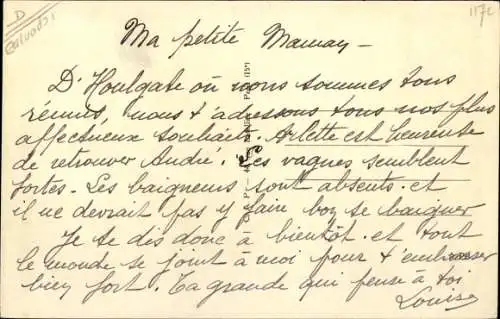 D
Calvados
1172
Ma petite Maman -
D'Houlgate où nous sommes tous
réunis, nous t'adressons tous nos plus
affectueux souhaits. Arlette est heureuse
de retrouver André. Les vagues semblent
fortes. Les baigneurs sont absents. et
il ne devrait pas y faire bon se baigner
Je te dis donc à bientôt. et tout
le monde se joint à moi pour t'embrasser
bien fort. Ta grande qui pense à toi
Louise